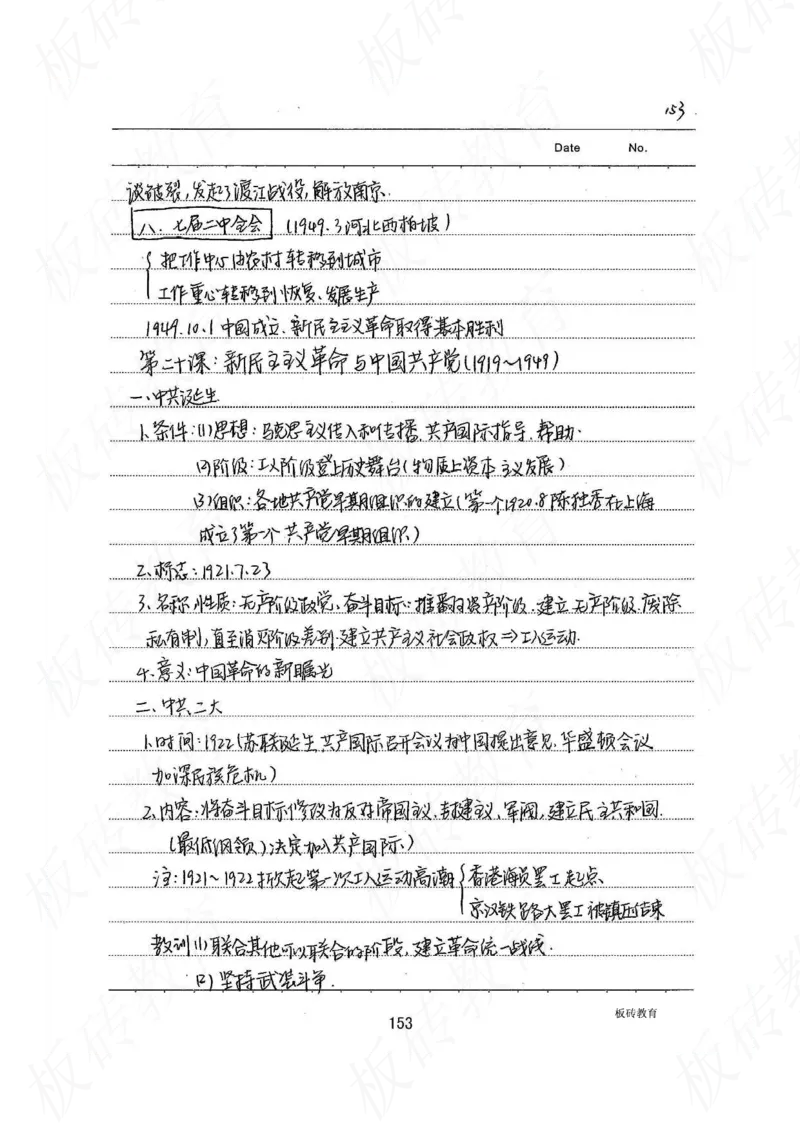 153
Date No.
谈破裂,发起了渡江战役,解放南京.
八、七届二中全会 (1949.3河北西柏坡)
把工作中心由农村转移到城市
工作重心转移到恢复、发展生产
1949.10.1 中国成立、新民主主义革命取得基本胜利
第二十课:新民主主义革命与中国共产党(1919~1949)
一、中共诞生
1、条件:(1)思想:马克思主义传入和传播,共产国际指导、帮助.
(2)阶级:工人阶级登上历史舞台(物质上资本主义发展)
(3)组织:各地共产党早期组织的建立(第一个1920.8陈独秀在上海
成立了第一个共产党早期组织)
2、标志:1921.7.23
3、名称、性质:无产阶级政党、奋斗目标:推翻资产阶级,建立无产阶级.废除
私有制,直至消灭阶级差别.建立共产主义社会政权⇒工人运动.
4、意义:中国革命的新曙光
二、中共二大
1、时间:1922(苏联诞生,共产国际召开会议为中国提出意见,华盛顿会议
加深民族危机)
2、内容:将奋斗目标修改为反对帝国主义、封建主义、军阀,建立民主共和国.
(最低纲领)决定加入共产国际.)
注:1921~1922掀起第一次工人运动高潮 香港海员罢工起点、
京汉铁路大罢工被镇压结束
教训(1)联合其他可以联合的阶段,建立革命统一战线.
(2)坚持武装斗争.
板砖教育
153